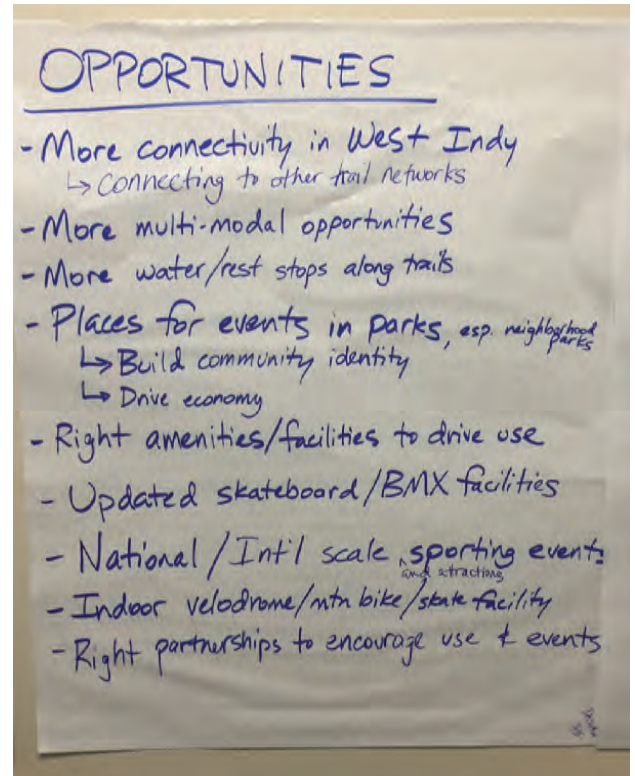 OPPORTUNITIES
- More connectivity in West Indy
↳ Connecting to other trail networks
- More multi-modal opportunities
- More water/rest stops along trails
- Places for events in parks, esp. neighborhood parks
↳ Build community identity
↳ Drive economy
- Right amenities/facilities to drive use
- Updated skateboard/BMX facilities
- National/Int'l scale ^ sporting events
and attractions
- Indoor velodrome/mtn bike/skate facility
- Right partnerships to encourage use & events